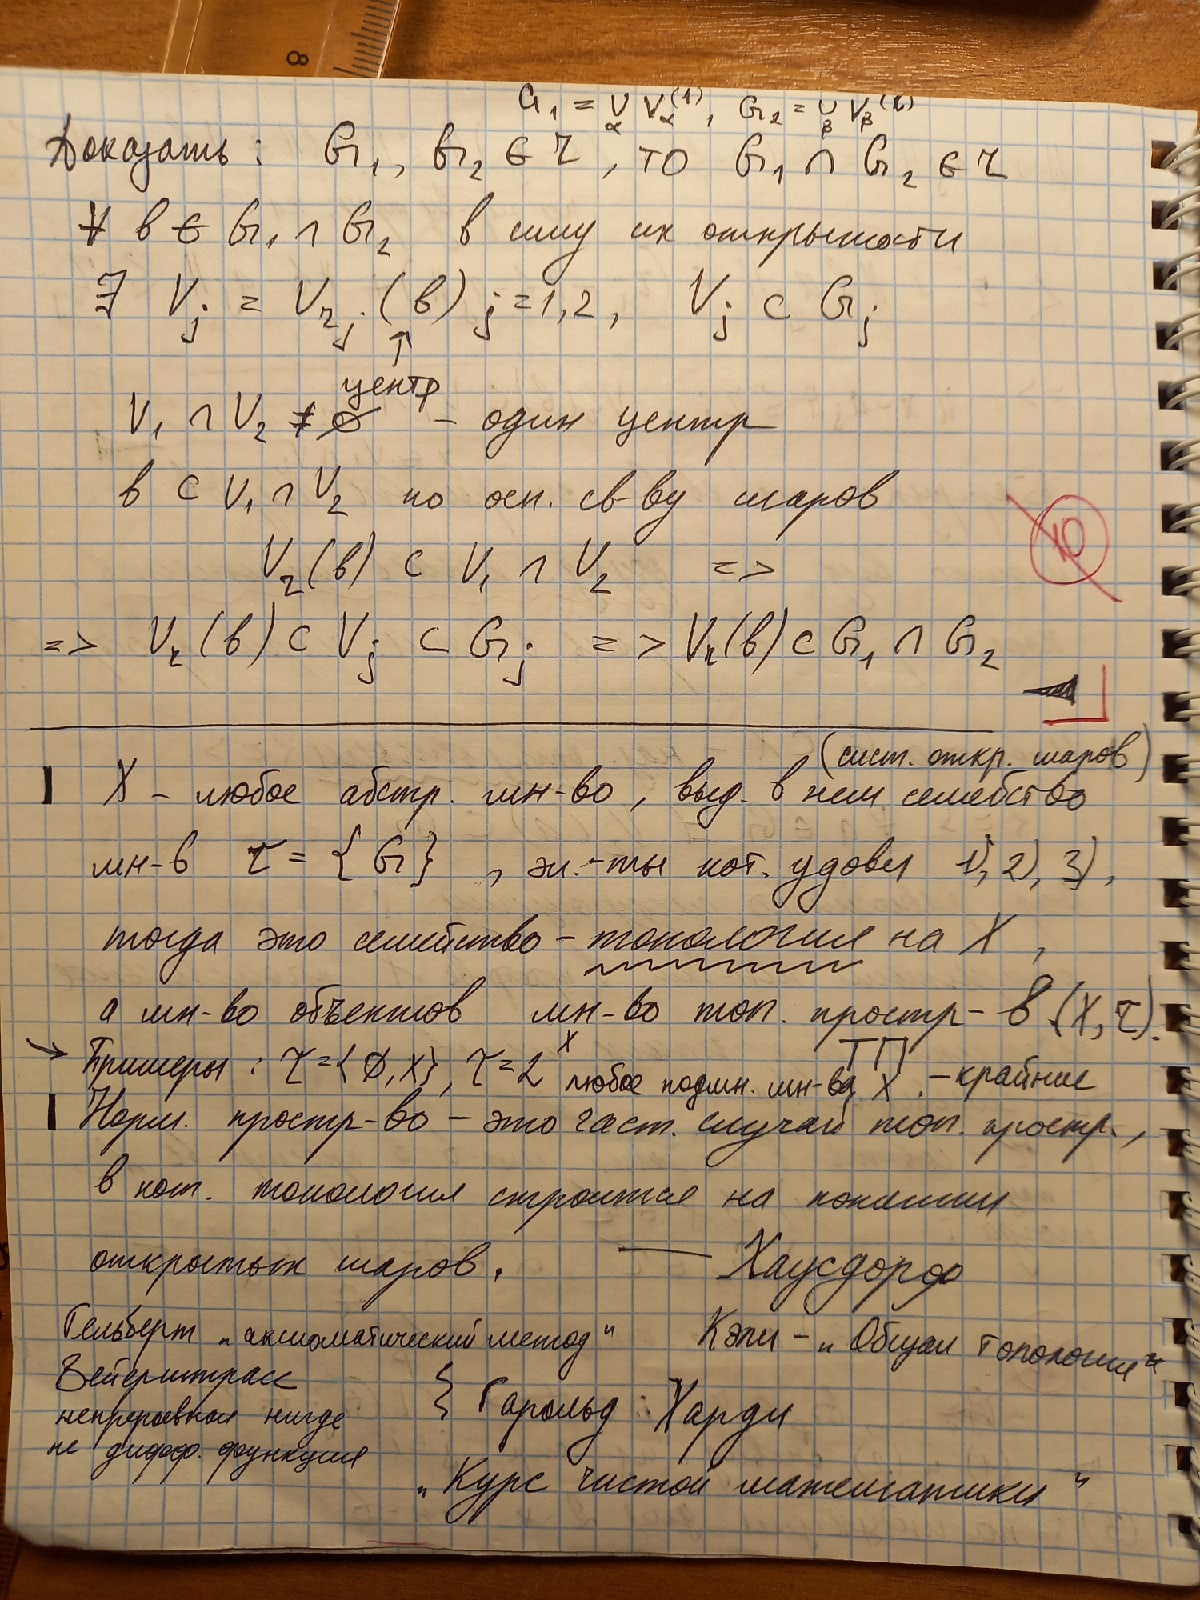 8
G₁ = ∪_α V_α^(1), G₂ = ∪_β V_β^(2)
Доказать: G₁, G₂ ∈ τ, то G₁ ∩ G₂ ∈ τ
∀ в ∈ G₁ ∩ G₂ в силу их открытости
∃ V_j = V_{r_j}(в) j=1,2, V_j ⊂ G_j
↑
центр
V₁ ∩ V₂ ≠ ∅ – один центр
в ⊂ V₁ ∩ V₂ по осн. св-ву шаров
V_r(в) ⊂ V₁ ∩ V₂ =>
10
=> V_r(в) ⊂ V_j ⊂ G_j => V_r(в) ⊂ G₁ ∩ G₂
(сист. откр. шаров)
X – любое абстр. мн-во, выд. в нем семейство
мн-в τ = {G}, эл.-ты кот. удовл 1), 2), 3),
тогда это семейство – топология на X,
а мн-во объектов мн-во топ. простр-в (X, τ).
ТП
→ Примеры: τ={∅,X}, τ=2^X любое подмн. мн-ва X. – крайние
Норм. простр-во – это част. случай топ. простр.,
в кот. топология строится на понятии
открытых шаров. — Хаусдорф
Гельберт „аксиоматический метод“ Кэли – „Общая топология“
Вейерштрасс
непрерывная нигде
не дифф. функция
} Гарольд Харди
„Курс чистой математики“